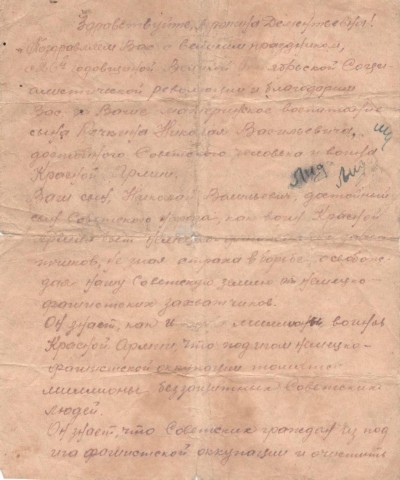 Здравствуйте, Дементьевна!
Поздравляем Вас с великим праздником,
годовщиной Великой Октябрьской Соци-
алистической революции и благодарим
Вас за Ваше материнское воспитание
сына Николая Васильевича,
достойного Советского человека и воина
Красной Армии.
Ваш сын, Николай Васильевич, достойный
сын Советского народа, как воин Красной
Армии бьет
не зная страха в борьбе, освобож-
дает нашу Советскую землю от немецко-
фашистских захватчиков.
Он знает, как и воины
Красной Армии, что под игом немецко-
фашистской оккупации томятся
миллионы беззащитных Советских
людей.
Он знает, что Советских граждан из под
ига фашистской оккупации и очистить